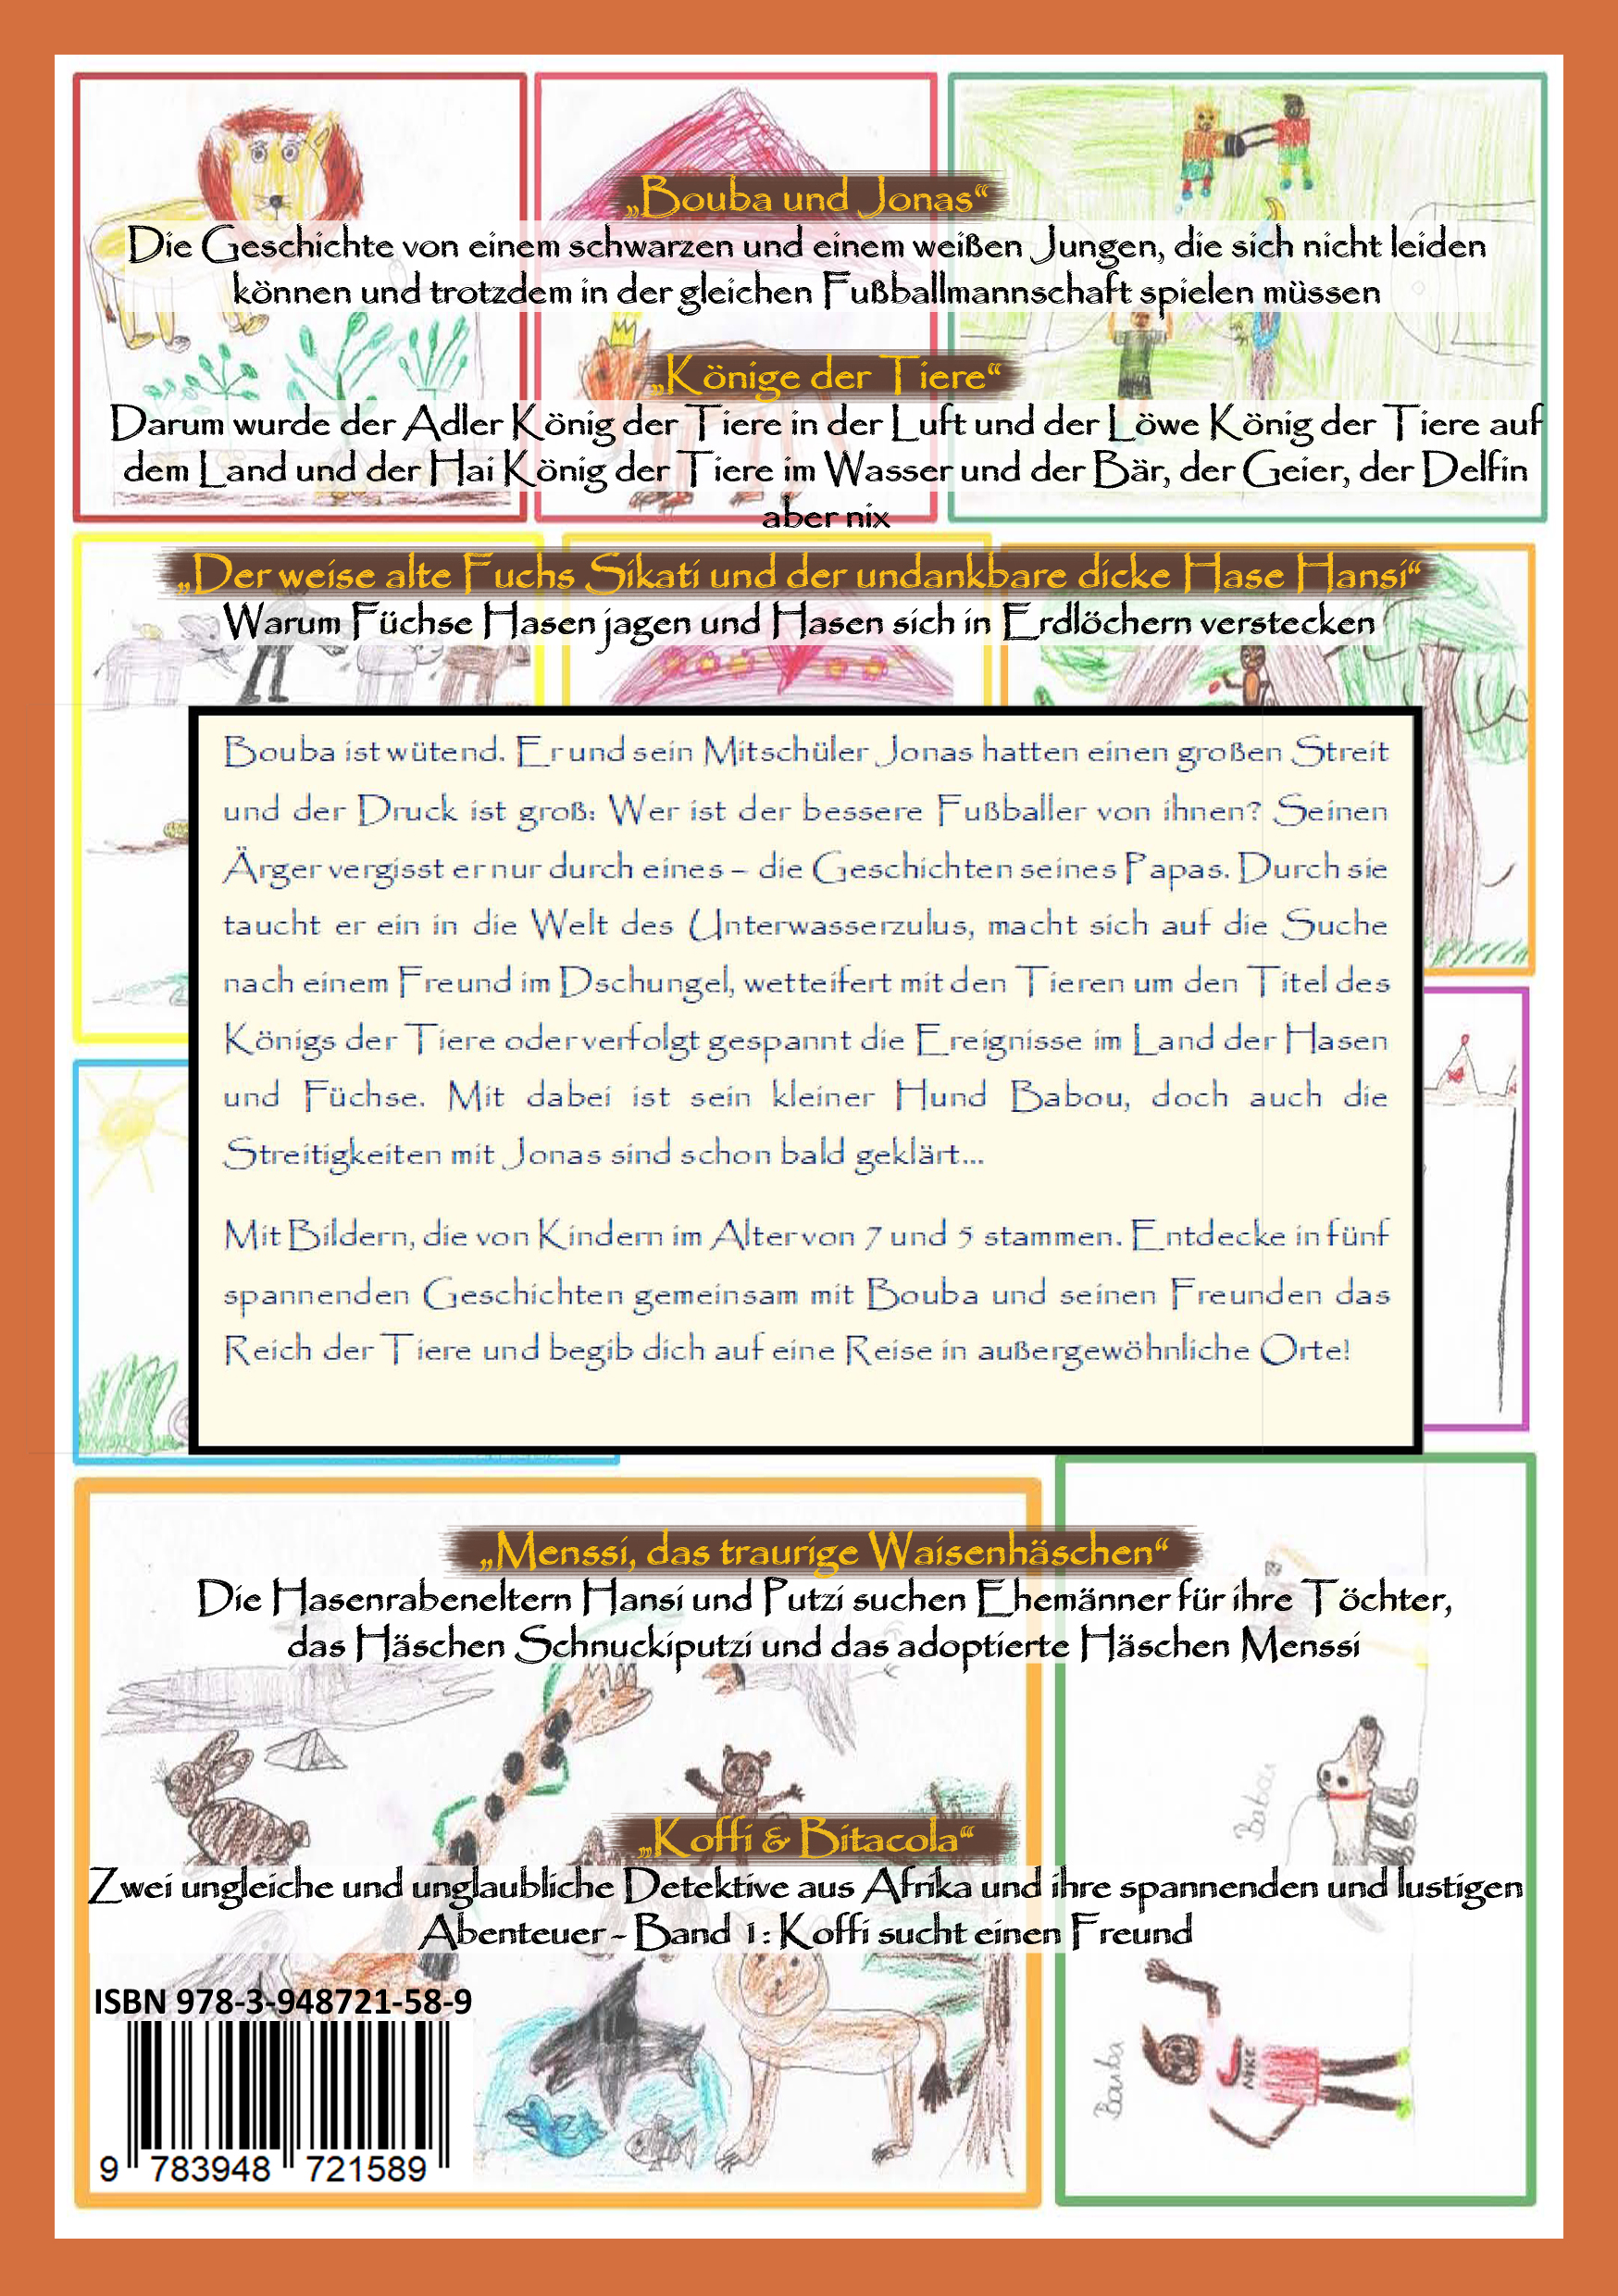 „Bouba und Jonas“
Die Geschichte von einem schwarzen und einem weißen Jungen, die sich nicht leiden
können und trotzdem in der gleichen Fußballmannschaft spielen müssen
„Könige der Tiere“
Darum wurde der Adler König der Tiere in der Luft und der Löwe König der Tiere auf
dem Land und der Hai König der Tiere im Wasser und der Bär, der Geier, der Delfin
aber nix
„Der weise alte Fuchs Sikati und der undankbare dicke Hase Hansi“
Warum Füchse Hasen jagen und Hasen sich in Erdlöchern verstecken
Bouba ist wütend. Er und sein Mitschüler Jonas hatten einen großen Streit
und der Druck ist groß: Wer ist der bessere Fußballer von ihnen? Seinen
Ärger vergisst er nur durch eines – die Geschichten seines Papas. Durch sie
taucht er ein in die Welt des Unterwasserzulus, macht sich auf die Suche
nach einem Freund im Dschungel, wetteifert mit den Tieren um den Titel des
Königs der Tiere oder verfolgt gespannt die Ereignisse im Land der Hasen
und Füchse. Mit dabei ist sein kleiner Hund Babou, doch auch die
Streitigkeiten mit Jonas sind schon bald geklärt...
Mit Bildern, die von Kindern im Alter von 7 und 5 stammen. Entdecke in fünf
spannenden Geschichten gemeinsam mit Bouba und seinen Freunden das
Reich der Tiere und begib dich auf eine Reise in außergewöhnliche Orte!
„Menssi, das traurige Waisenhäschen“
Die Hasenrabeneltern Hansi und Putzi suchen Ehemänner für ihre Töchter,
das Häschen Schnuckiputzi und das adoptierte Häschen Menssi
Babou
„Koffi & Bitacola“
Zwei ungleiche und unglaubliche Detektive aus Afrika und ihre spannenden und lustigen
Abenteuer - Band 1: Koffi sucht einen Freund
ISBN 978-3-948721-58-9
9 783948 721589
Bouba
NIKE